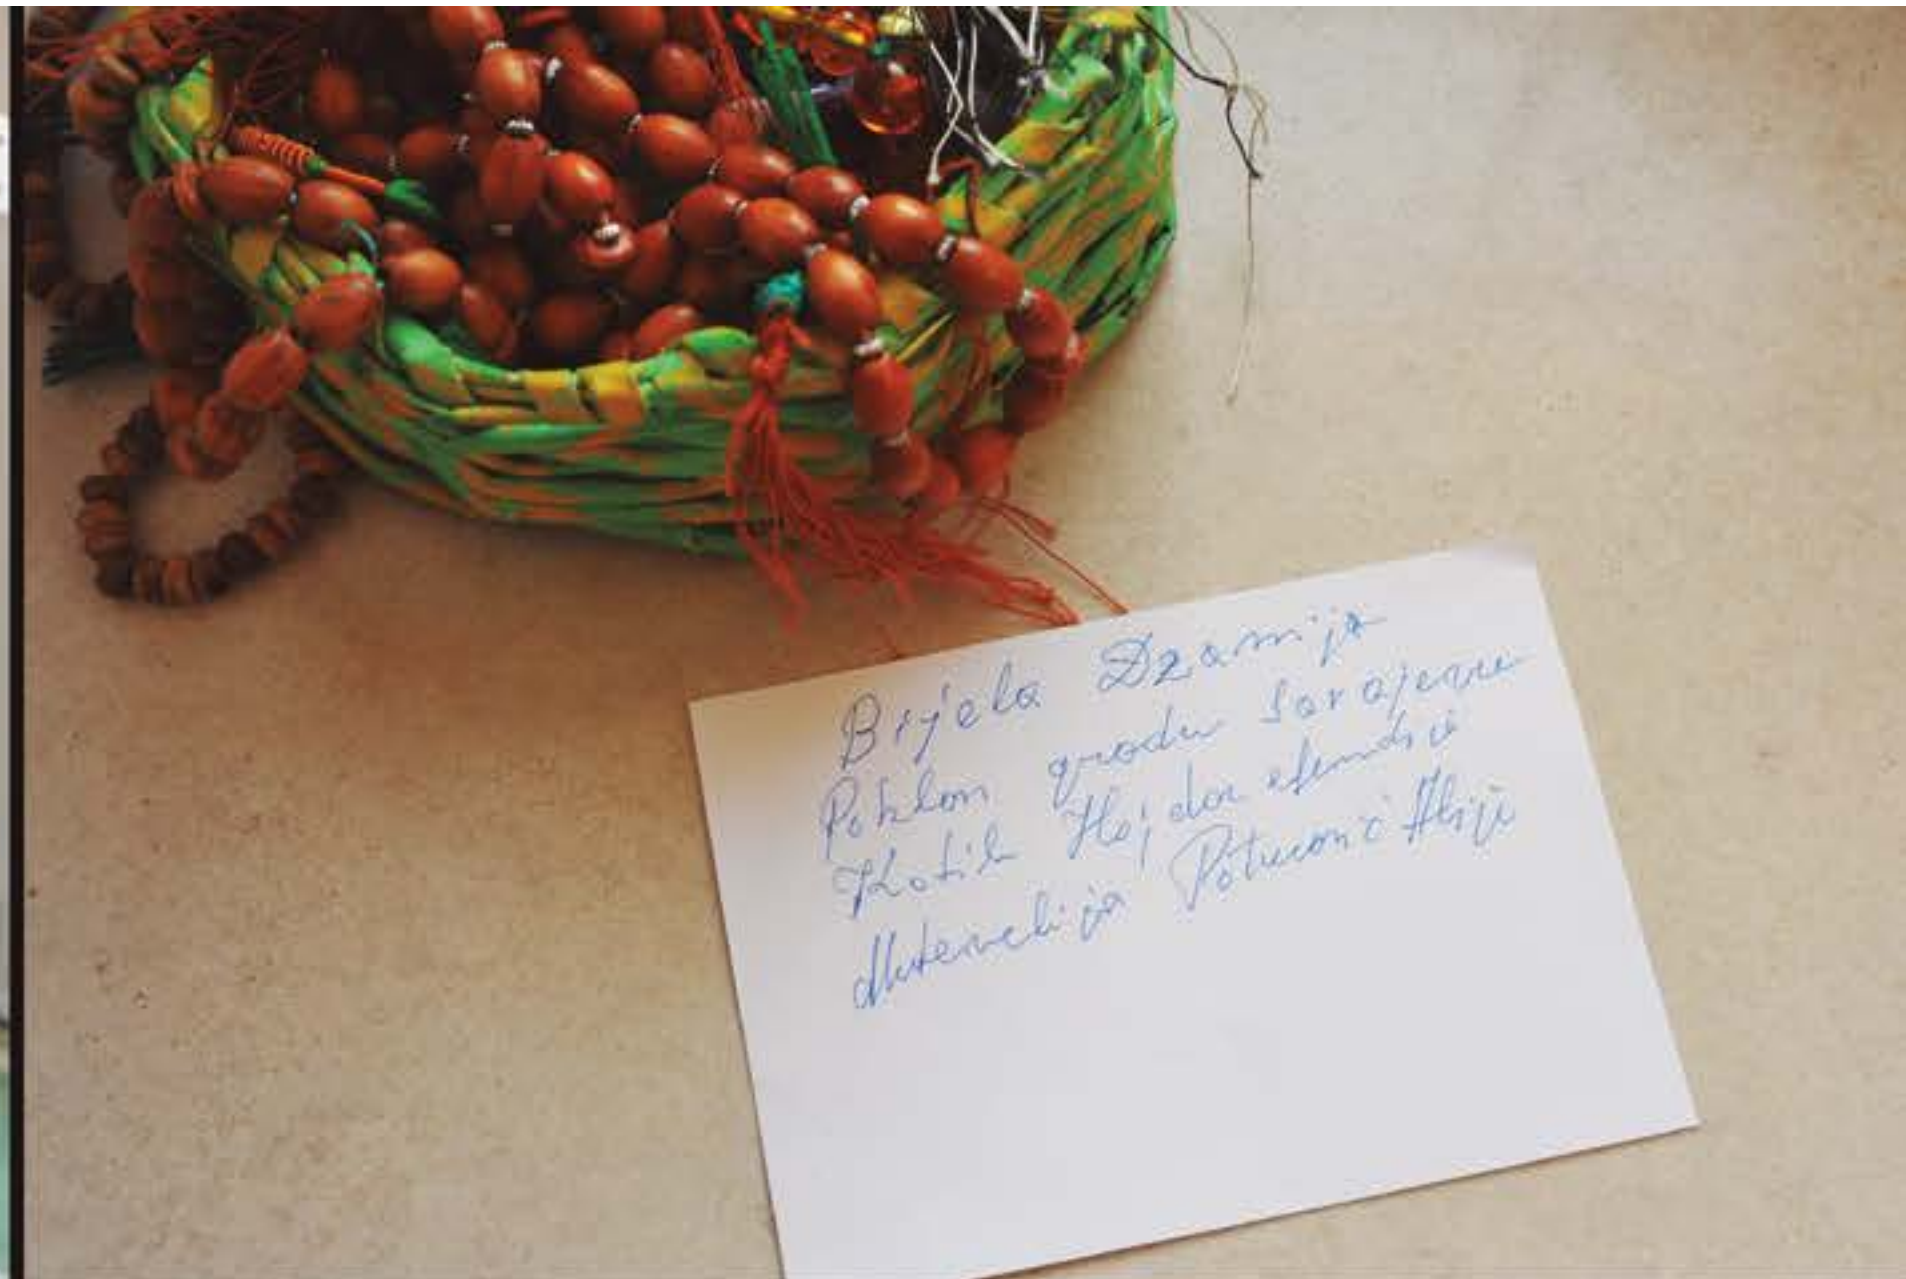 Bijela Dzamija
Poklon gradu Sarajevu
Katib Hajdar efendić
Mutevelija Alija